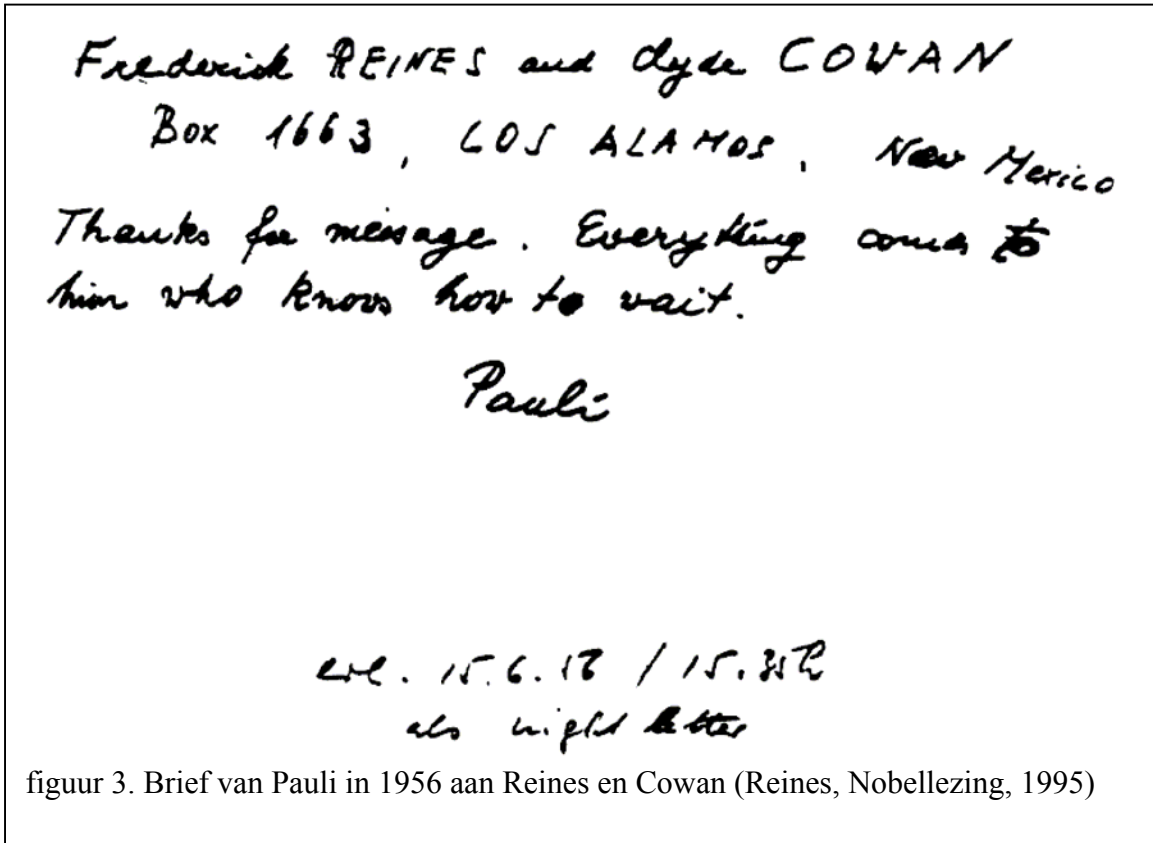 Frederick REINES and Clyde COWAN
Box 1663, LOS ALAMOS, New Mexico
Thanks for message. Everything comes to
him who knows how to wait.
Pauli
15.6.
als night letter
figuur 3. Brief van Pauli in 1956 aan Reines en Cowan (Reines, Nobellezing, 1995)